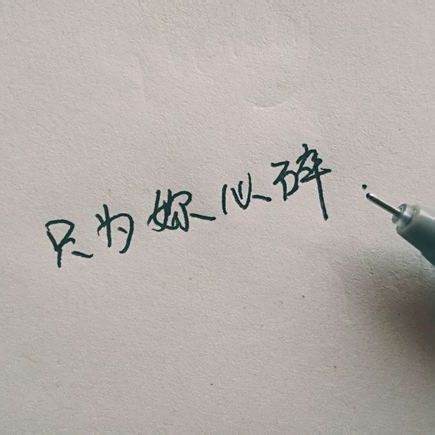 只为妳心碎